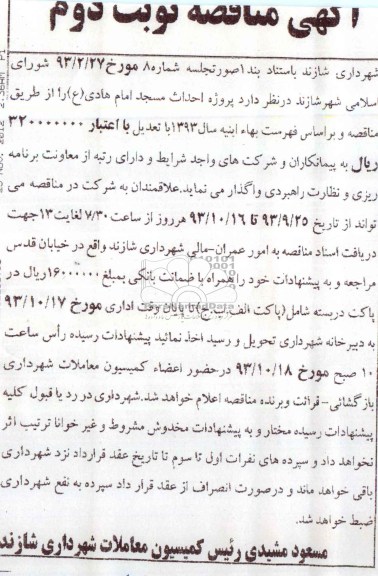 آگهی مناقصه نوبت دوم
شهرداری شازند باستناد بند۱صورتجلسه شماره۸ مورخ۹۳/۲/۲۷ شورای
اسلامی شهرشازند درنظر دارد پروژه احداث مسجد امام هادی(ع)را از طریق
مناقصه و براساس فهرست بهاء ابنیه سال۱۳۹۳با تعدیل با اعتبار ۳۲۰۰۰۰۰۰۰۰
ریال به پیمانکاران و شرکت های واجد شرایط و دارای رتبه از معاونت برنامه
ریزی و نظارت راهبردی واگذار می نماید.علاقمندان به شرکت در مناقصه می
تواند از تاریخ ۹۳/۹/۲۵ تا ۹۳/۱۰/۱۶ هرروز از ساعت۷/۳۰ لغایت۱۳جهت
دریافت اسناد مناقصه به امور عمران-مالی شهرداری شازند واقع در خیابان قدس
مراجعه و به پیشنهادات خود را همراه با ضمانت بانکی بمبلغ۱۶۰۰۰۰۰۰۰ریال در
پاکت دربسته شامل(پاکت الف.ب.ج)تا پایان وقت اداری مورخ ۹۳/۱۰/۱۷
به دبیرخانه شهرداری تحویل و رسید اخذ نمائید پیشنهادات رسیده رأس ساعت
۱۰ صبح مورخ ۹۳/۱۰/۱۸ درحضور اعضاء کمیسیون معاملات شهرداری
بازگشائی-قرائت وبرنده مناقصه اعلام خواهد شد.شهرداری در رد یا قبول کلیه
پیشنهادات رسیده مختار و به پیشنهادات مخدوش مشروط و غیر خوانا ترتیب اثر
نخواهد داد و سپرده های نفرات اول تا سوم تا تاریخ عقد قرارداد نزد شهرداری
باقی خواهد ماند و درصورت انصراف از عقد قرار داد سپرده به نفع شهرداری
ضبط خواهد شد.
مسعود مشیدی رئیس کمیسیون معاملات شهرداری شازند